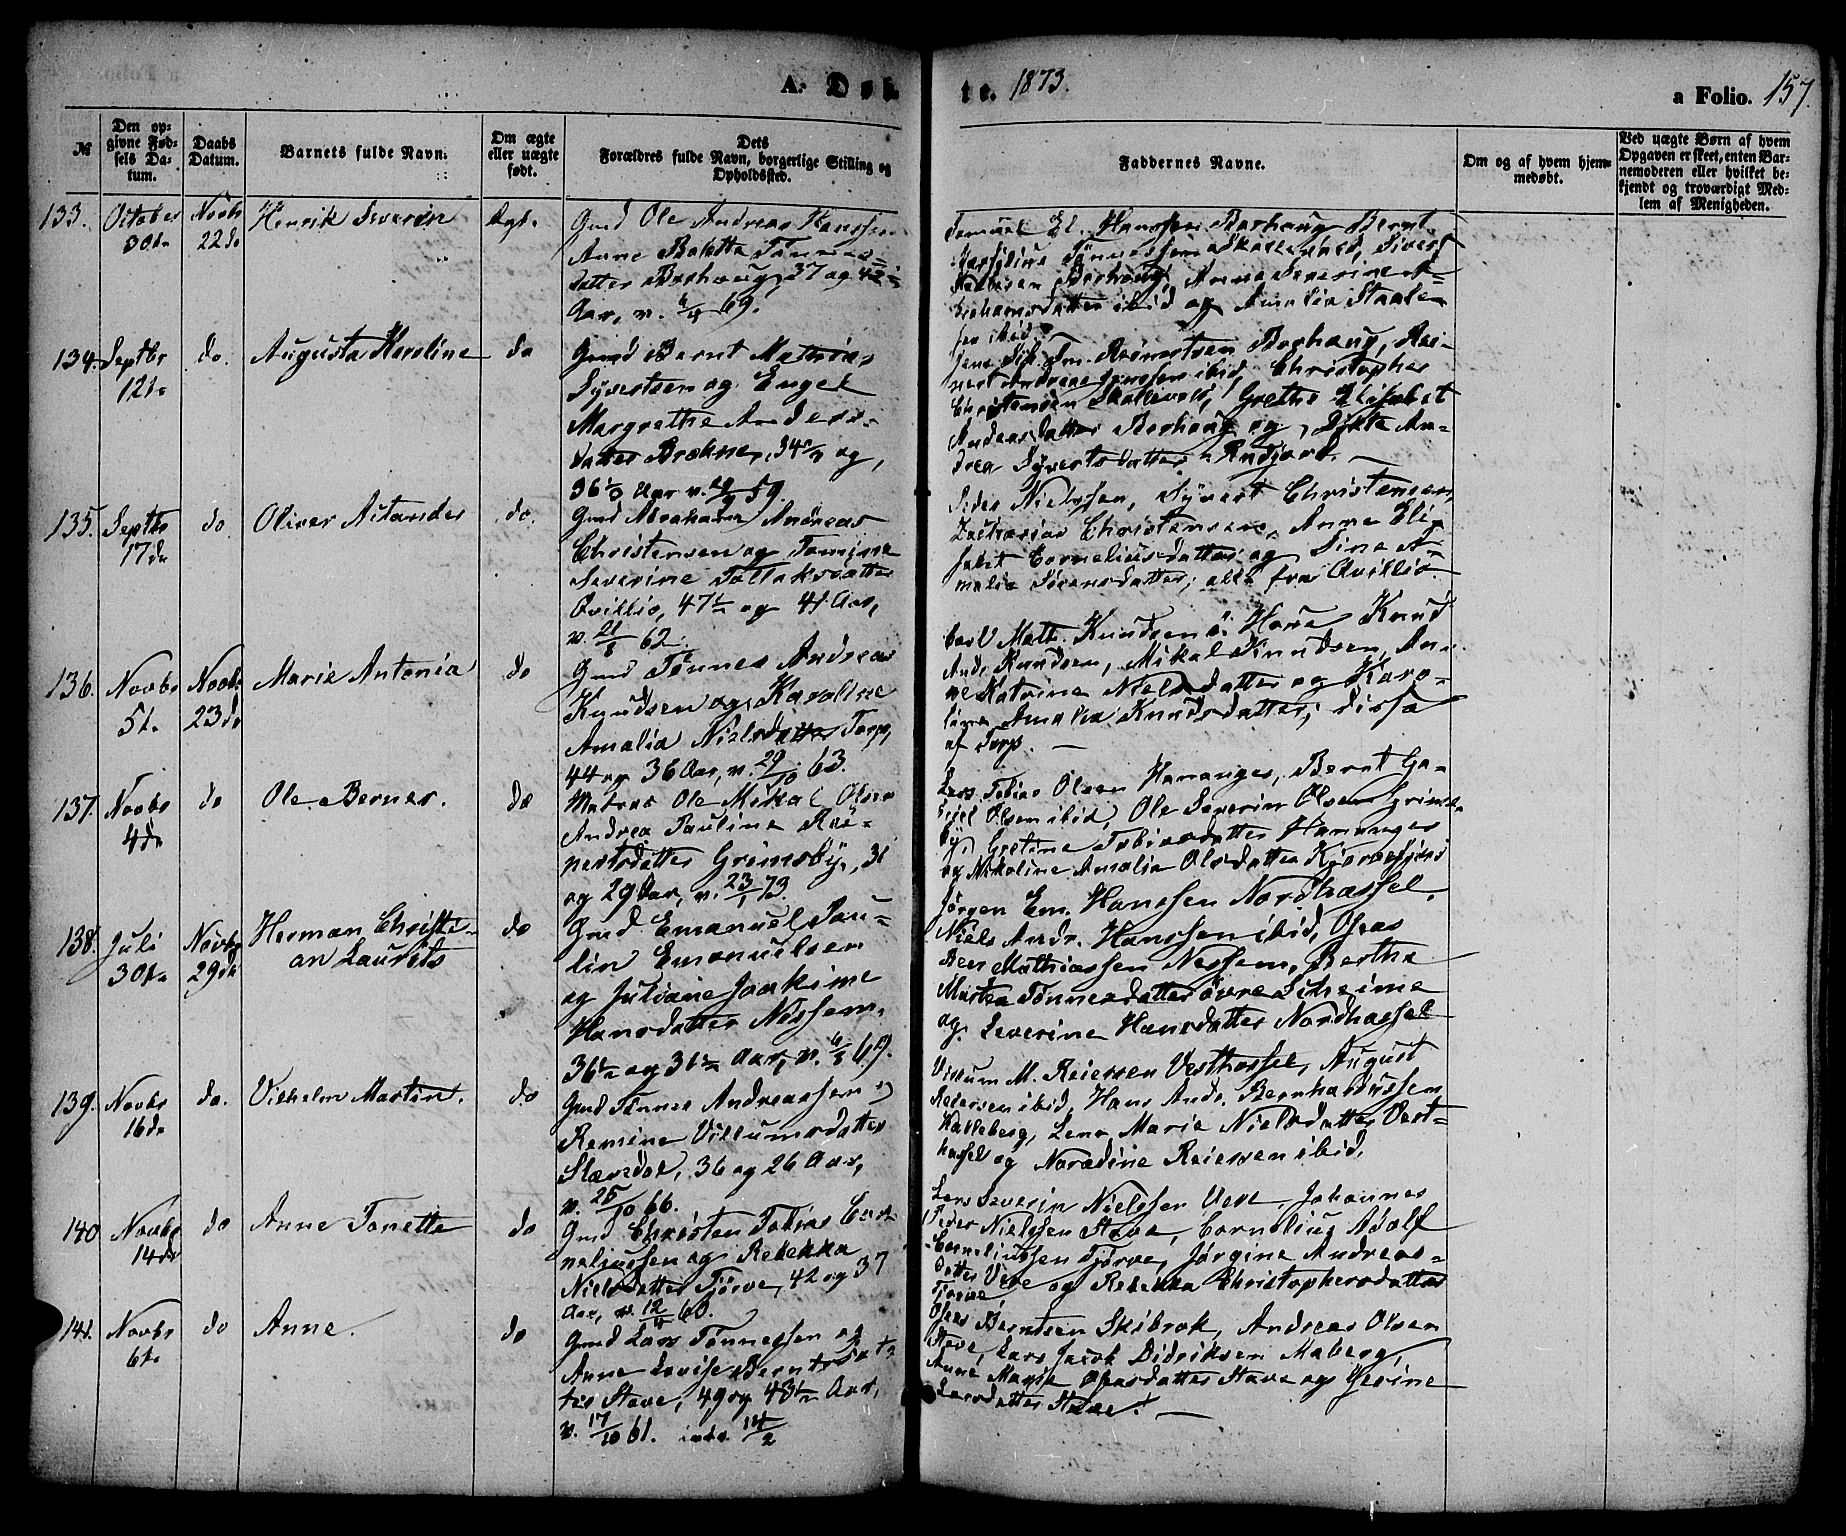 A. Døb
te. 1873.
a Folio. 157.
№
Den op-
givne Fød-
sels Da-
tum.
Daabs
Datum.
Barnets fulde Navn.
Om ægte
eller uægte
født.
Dets
Forældres fulde Navn, borgerlige Stilling og
Opholdssted.
Faddernes Navne.
Om og af hvem hjem-
medøbt.
Ved uægte Børn af hvem
Opgaven er skeet, enten Bar-
nemoderen eller hvilket be-
kjendt og troværdigt Med-
lem af Menigheden.
133. October
30te
Novbr
22de
Henrik Severin
Ægt.
Gmd Ole Andreas Hanssen
Anne Tønnes-
datter Borhaug, 37 og 42
Aar, v. 69.
Samuel El. Hanssen Borhaug, Bernt
Tønnessen Skallevold, Sivert
Borhaug, Anne Severine A-
brahamsdatter ibid og Amalia Staale-
sen ibid.
134. Septbr
12te
do.
Augusta Karoline
do
Gmd Bernt Mathias
Syvertsen og Engel
Margrethe Anders-
datter Brekne, 34 1/2 og
36 1/2 Aar v. 59.
Reinertsen Borhaug, Rei-
nert Andreas ibid Christopher
Christensen Skallevold, Grethe Elisabet
Andersdatter Borhaug og An-
drea Syvertsdatter
135. Septbr
17de
do
Oliver Astander
do.
Gmd Abraham Andreas
Christensen og Tomine
Severine Tollaksdatter
Qvillio, 47 1/2 og 41 Aar,
v. 21/8 62.
Peder Nielssen, Syvert Christensen,
Zacharias Christensen, Anne Eli-
sabet Corneliusdatter og Sine A-
malia Sørensdatter; alle fra Qvillio.
136. Novbr
5te
Novbr
23de
Marie Antonia
do
Gmd Tønnes Andreas
Knudsen og Karoline
Amalia Nielsdatter Torp,
44 og 36 Aar, v. 29/10 63.
Carl Math. Knudsen i Haue Knud
And. Knudsen, Mikal Knudsen, An-
ne Katrine Nielsdatter og Karo-
line Amalia Knudsdatter; disse
af Torp.
137. Novbr
4de
do
Ole Berner.
do
Matros Ole Mikal Olsen
Andrea Pauline Rei-
nertsdatter Grimsby, 31
og 29 Aar, v. 23/1 73.
Lars Tobias Olsen Hananger, Bernt Ga-
briel Olsen ibid, Ole Severin Olsen Grims-
by, Gretine Tobiasdatter Hananger
og Nikoline Amalia Olsdatter
138. Juli
30te
Novbr
29de
Herman Christi-
an Laurits
do
Gmd Emanuel Pau-
lin Emanuelsen
og Juliane Joakime
Hansdatter Nessem,
36 1/2 og 31 1/2 Aar, v. 6/5 69.
Jørgen Em. Hanssen Nordhassel,
Niels Andr. Hanssen ibid,
Mathiassen Nessem, Bertha
Martea Tønnesdatter øvre Skeime
og Severine Hansdatter Nordhassel
139. Novbr
16de
do.
Vilhelm Martin.
do
Gmd Tønnes Andreassen og
Remine Villumsdatter
Slævdal, 36 og 26 Aar,
v. 25/10 66.
Villum M. Reiersen Vesthassel, August
Reiersen ibid, Hans Andr. Bernhardussen
Kalleberg, Lena Marie Nielsdatter Vest-
hassel og Noradine Reiersen ibid.
140 Novbr
14de
do
Anne Tonette
do
Gmd Christen Tobias Cor-
neliussen og Rebekka
Nielsdatter Tjørve, 42 og 37
Aar, v. 12/4 60.
Lars Severin Nielssen Vere, Johannes
Peder Nielssen Stave, Cornelius Adolf
Corneliussen Tjørve, Jørgine Andreas-
datter Vere og Rebekka Christophersdatter
Tjørve
141. Novbr
6te
do
Anne.
do
Gmd Lars Tønnessen og
Anne Lovise Berntsdat-
ter Stave, 49 og 43 1/2 Aar,
v. 17/10 61. 14/2
Berntsen Skibrok, Andreas Olsen
Stave, Lars Jacob Didriksen Maberg,
Anne Marie Olsdatter Stave og Gesine
Larsdatter Stave.